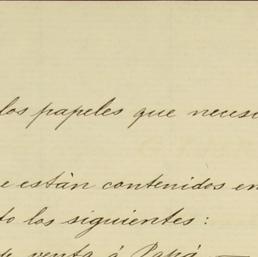 los papeles que necesi
e están contenidos en
to los siguientes:
de venta á Papá —